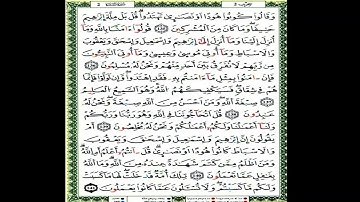 وَقَالُوا كُونُوا هُودًا اَوْ نَصَٰرَىٰ تَهْتَدُوا قُلْ بَلْ مِلَّةَ إِبْرَٰهِيمَ
حَنِيفًا وَمَا كَانَ مِنَ الْمُشْرِكِينَ قُولُوا ءَامَنَّا بِاللَّهِ وَمَا
أُنزِلَ إِلَيْنَا وَمَا أُنزِلَ إِلَىٰ إِبْرَٰهِيمَ وَإِسْمَٰعِيلَ وَإِسْحَٰقَ وَيَعْقُوبَ
وَالَاسْبَاطِ وَمَا أُوتِيَ مُوسَىٰ وَعِيسَىٰ وَمَا أُوتِيَ النَّبِيئُونَ
مِن رَّبِّهِمْ لَا نُفَرِّقُ بَيْنَ أَحَدٍ مِّنْهُمْ وَنَحْنُ لَهُ مُسْلِمُونَ
فَإِنَ ءَامَنُوا بِمِثْلِ مَا ءَامَنتُم بِهِ فَقَدِ اِهْتَدَوا وَّإِن تَوَلَّوْا فَإِنَّمَا
هُمْ فِي شِقَاقٍ فَسَيَكْفِيكَهُمُ اللَّهُ وَهُوَ السَّمِيعُ الْعَلِيمُ
صِبْغَةَ اللَّهِ وَمَنَ اَحْسَنُ مِنَ اللَّهِ صِبْغَةً وَنَحْنُ لَهُ
عَٰبِدُونَ قُلَ اَتُحَاجُّونَنَا فِي اللَّهِ وَهُوَ رَبُّنَا وَرَبُّكُمْ
وَلَنَا أَعْمَٰلُنَا وَلَكُمُ أَعْمَٰلُكُمْ وَنَحْنُ لَهُ مُخْلِصُونَ أَمْ
يَقُولُونَ إِنَّ إِبْرَٰهِيمَ وَإِسْمَٰعِيلَ وَإِسْحَٰقَ وَيَعْقُوبَ
وَالَاسْبَاطَ كَانُوا هُودًا اَوْ نَصَٰرَىٰ قُلَ ءَآنتُمُ أَعْلَمُ أَمِ اللَّهُ
وَمَنَ اَظْلَمُ مِمَّن كَتَمَ شَهَٰدَةً عِندَهُ مِنَ اللَّهِ وَمَا اللَّهُ
بِغَٰفِلٍ عَمَّا تَعْمَلُونَ تِلْكَ أُمَّةٌ قَدْ خَلَتْ لَهَا مَا كَسَبَتْ
وَلَكُم مَّا كَسَبْتُمْ وَلَا تُسْـَٔلُونَ عَمَّا كَانُوا يَعْمَلُونَ